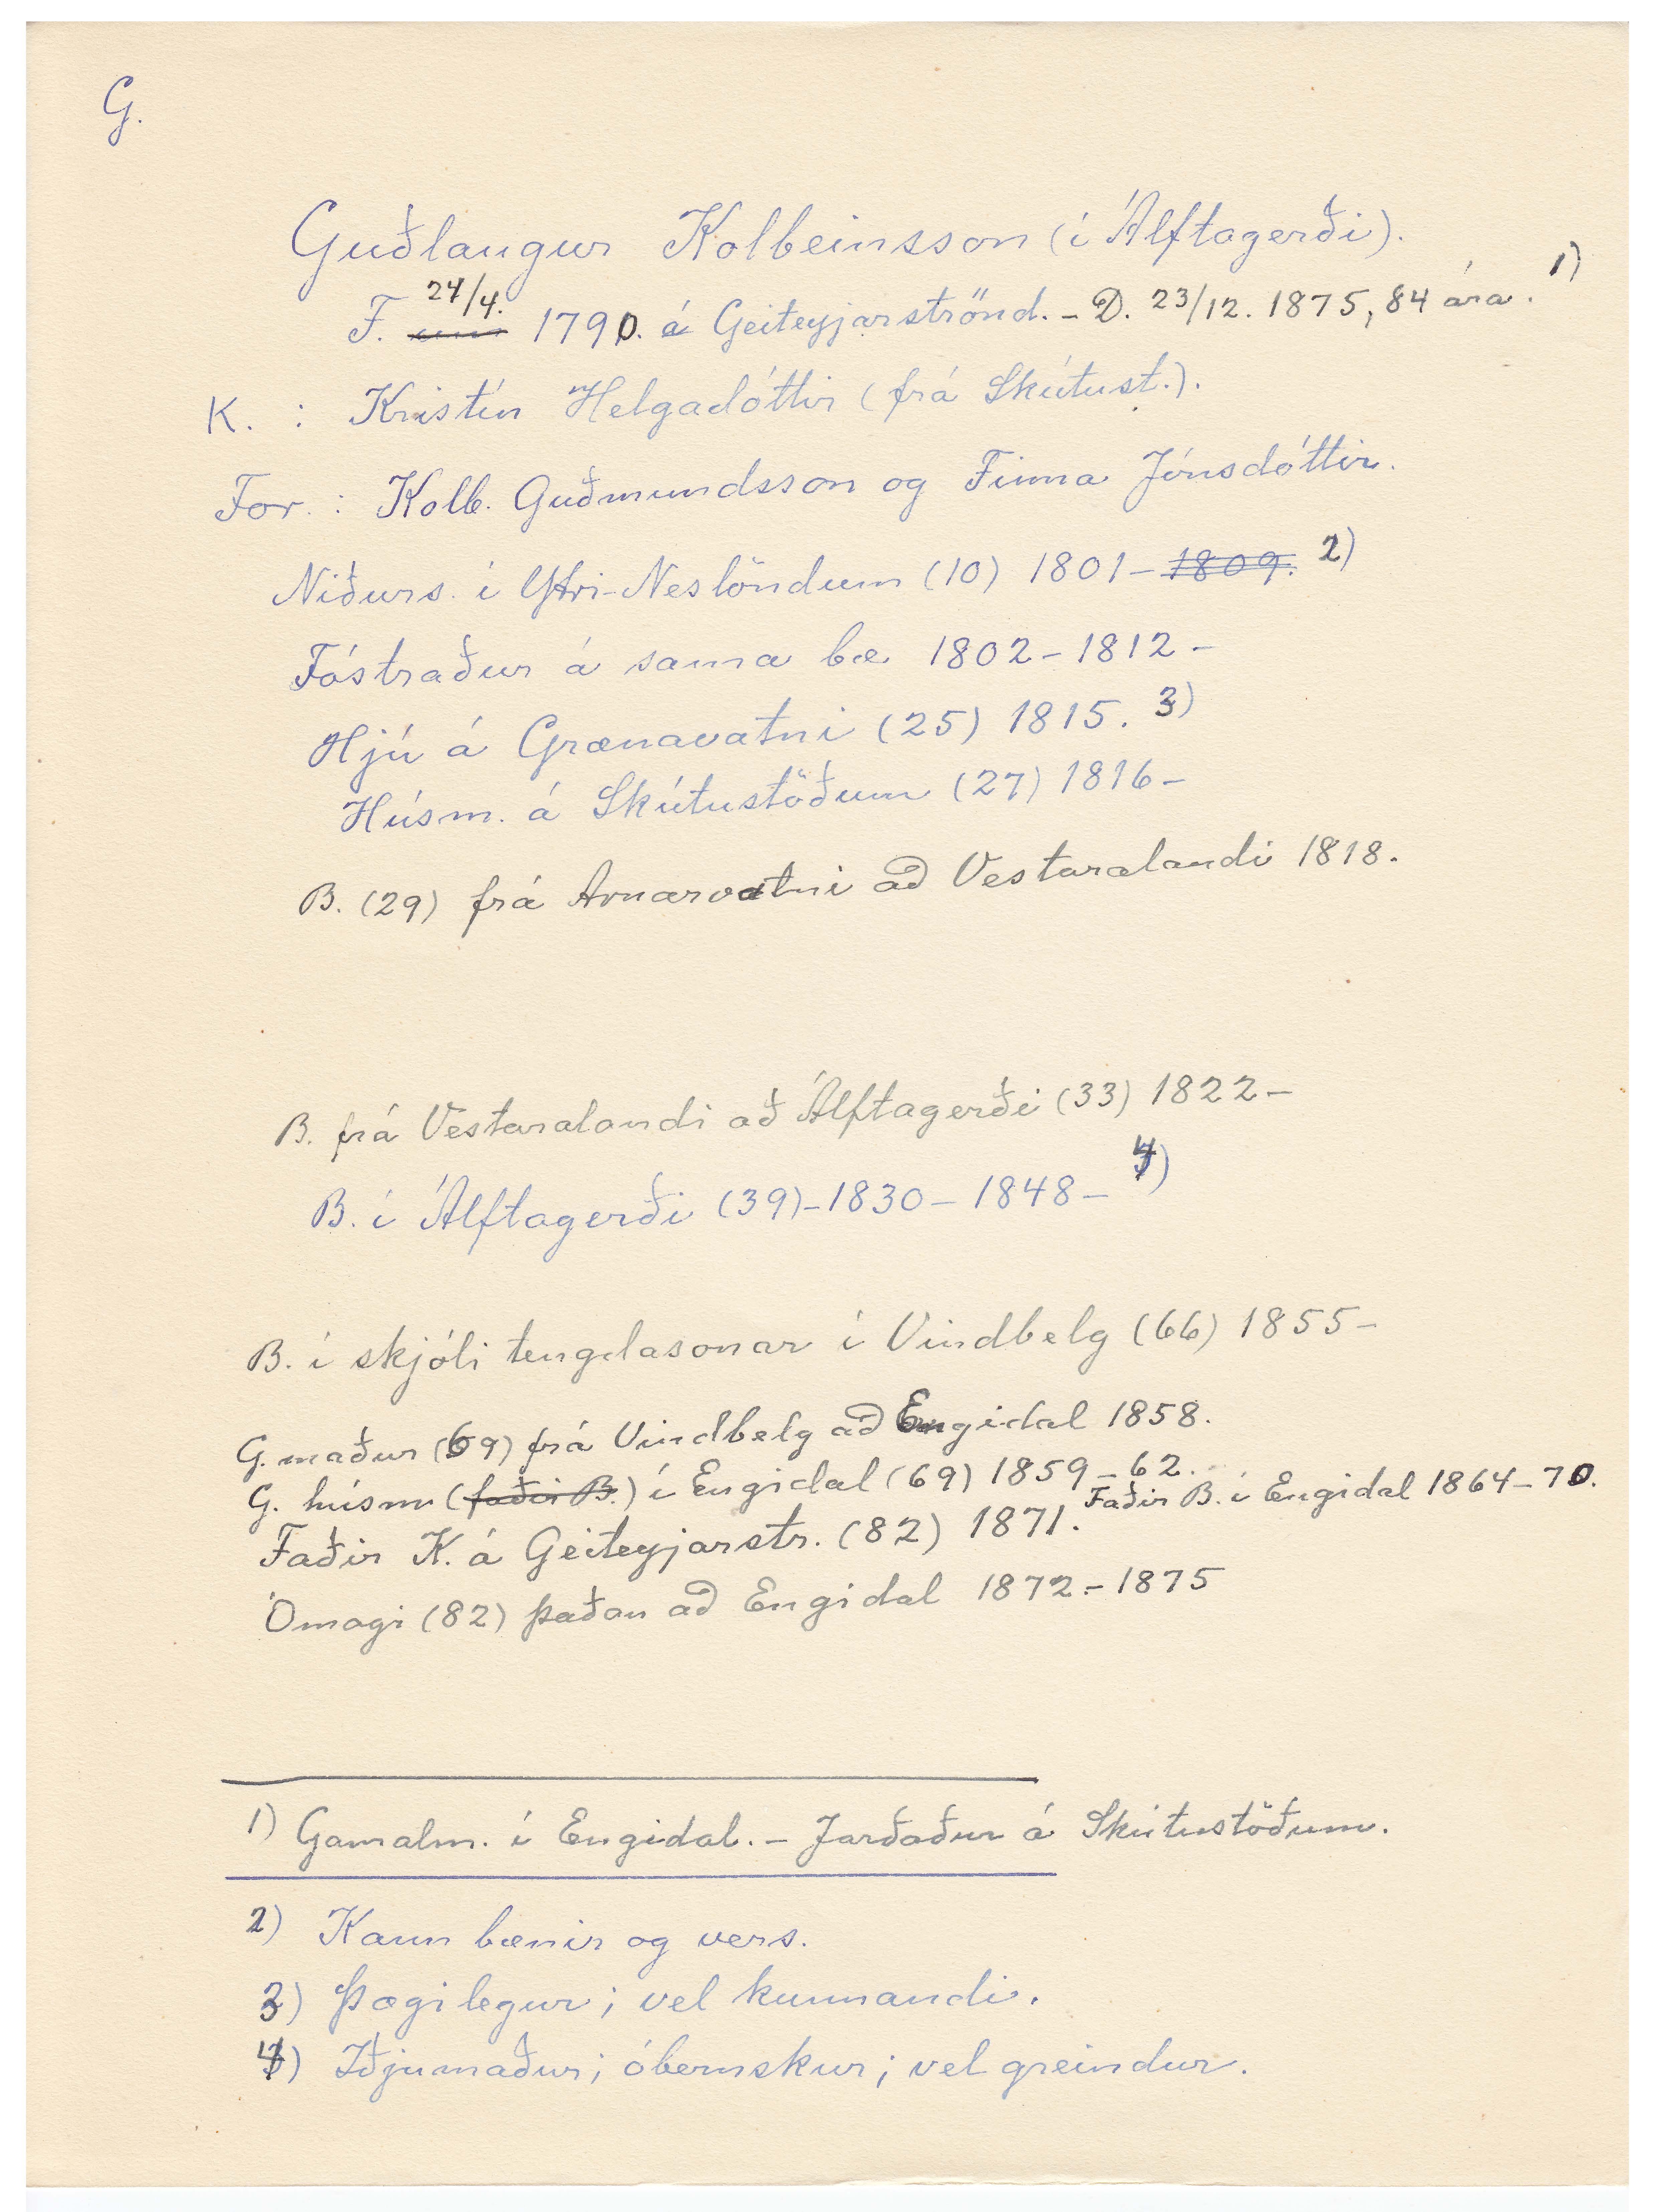 G.
Guðlaugur Kolbeinsson (í Álftagerði).
F. 24/4. 1790. á Geiteyjarströnd. - D. 23/12. 1875, 84 ára. 1)
K. : Kristín Helgadóttir (frá Skútust.).
For. : Kolb. Guðmundsson og Finna Jónsdóttir.
Niðurs. í Ytri-Neslöndum (10) 1801 - 1809. 2)
Fóstraður á sama bæ 1802 - 1812 -
Hjú á Grænavatni (25) 1815. 3)
Húsm. á Skútustöðum (27) 1816 -
B. (29) frá Arnarvatni að Vestaralandi 1818.
B. frá Vestaralandi að Álftagerði (33) 1822 -
B. í Álftagerði (39) - 1830 - 1848 - 4)
B. í skjóli tengdasonar í Vindbelg (66) 1855 -
G. maður (69) frá Vindbelg að Engidal 1858.
G. húsm (faðir B.) í Engidal (69) 1859 - 62. Faðir B. í Engidal 1864 - 70.
Faðir K. á Geiteyjarstr. (82) 1871.
Ómagi (82) þaðan að Engidal 1872 - 1875
1) Gamalm. í Engidal. - Jarðaður á Skútustöðum.
2) Kann bænir og vers.
3) Þægilegur; vel kunnandi.
4) Iðjumaður; óbernskur; vel greindur.